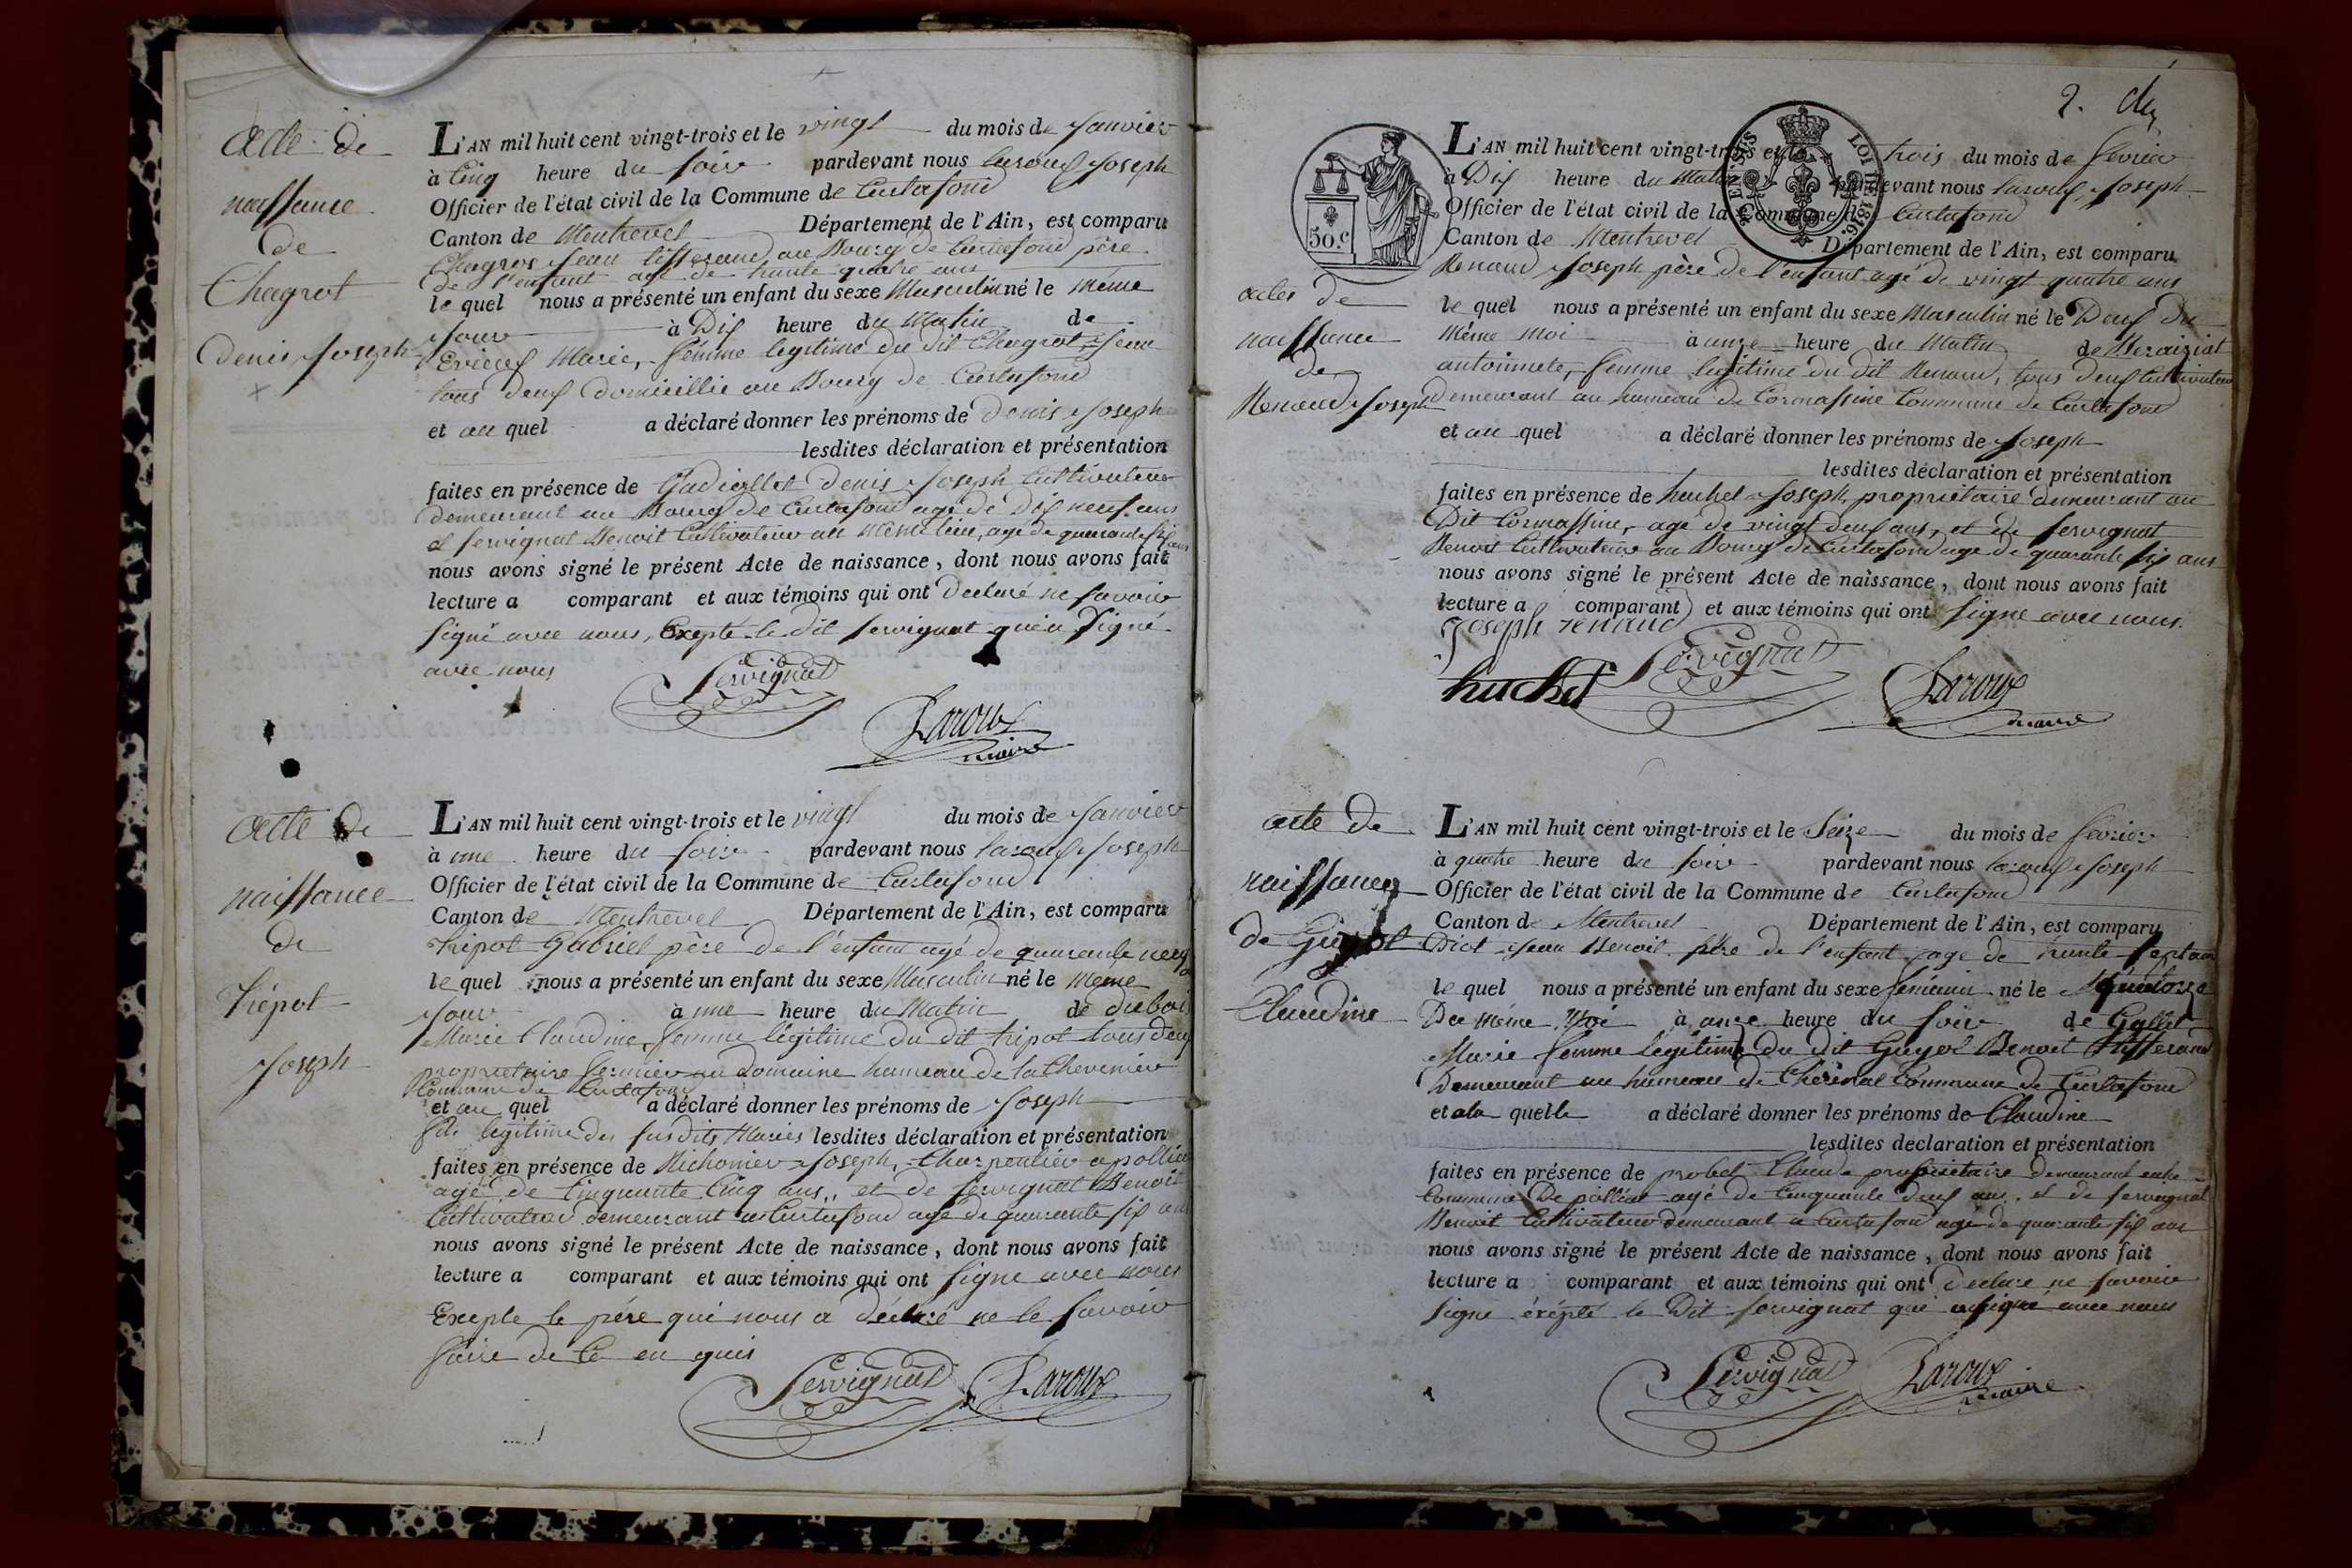 acte de
naissance
de
Chagrot
Denis Joseph
L'AN mil huit cent vingt-trois et le vingt du mois de Janvier
à Cinq heure du soir pardevant nous laroux Joseph
Officier de l'état civil de la Commune de Curtafond
Canton de Montrevel Département de l'Ain, est comparu
Chagros Jean tisserand au Bourg de Curtafond père
de l'enfant agé de trante quatre ans
le quel nous a présenté un enfant du sexe Masculin né le même
Jour à Dix heure du Matin de
Evieux Marie, femme legitime du dit Chagrot Jean
tous deux domicillié au Bourg de Curtafond
et au quel a déclaré donner les prénoms de Denis Joseph
lesdites déclaration et présentation
faites en présence de Gadiollet Denis Joseph Cultivateur
demeurant au Bourg de Curtafond agé de Dix neuf ans
et servignat Benoit Cultivateur au même lieu, agé de quarante six ans
nous avons signé le présent Acte de naissance, dont nous avons fait
lecture a comparant et aux témoins qui ont declaré ne savoir
signé avec nous, Exepté le dit servignat qui a signé
avec nous
Servignat
Laroux
maire
acte de
naissance
de
tripot
Joseph
L'AN mil huit cent vingt-trois et le vingt du mois de Janvier
à une heure du soir pardevant nous laroux Joseph
Officier de l'état civil de la Commune de Curtafond
Canton de Montrevel Département de l'Ain, est comparu
tripot Gabriel père de l'enfant agé de quarante neuf
le quel nous a présenté un enfant du sexe Masculin né le même
Jour à une heure du Matin de dubois
Marie Claudine, femme légitime du dit tripot tous deux
propriétaire fermier au Domaine hameau de la Cheveniere
Commune de Curtafond
et au quel a déclaré donner les prénoms de Joseph
fils légitime des susdits Maries lesdites déclaration et présentation
faites en présence de Michonier Joseph, Charpentier a polliat
agé de Cinquante Cinq ans, et de servignat Benoit
Cultivateur demeurant a Curtafond agé de quarante six ans
nous avons signé le présent Acte de naissance, dont nous avons fait
lecture a comparant et aux témoins qui ont signe avec nous
Exepte le père qui nous a déclaré ne le savoir
faire de Ce en quis
Servignat Laroux
2. du
50.c
LOI DE 1816.
acter de
naissance
de
Renaud Joseph
L'AN mil huit cent vingt-trois et le trois du mois de fevrier
à Dix heure du Matin pardevant nous laroux Joseph
Officier de l'état civil de la Commune de Curtafond
Canton de Montrevel Département de l'Ain, est comparu
Renaud Joseph père de l'enfant agé de vingt quatre ans
le quel nous a présenté un enfant du sexe Masculin né le Deux du
même moi à unze heure du Matin de Meraiziat
antoinnete, femme legitime du dit Renaud, tous deux Cultivateur
demeurant au hameau de Cormassine Commune de Curtafond
et au quel a déclaré donner les prénoms de Joseph
lesdites déclaration et présentation
faites en présence de huchet Joseph, propriétaire demeurant au
Dit Cormassine, agé de vingt deux ans, et de servignat
Benoit Cultivateur au Bourg de Curtafond agé de quarante six ans
nous avons signé le présent Acte de naissance, dont nous avons fait
lecture a comparant et aux témoins qui ont signe avec nous.
Joseph renaud
huchet Servignat Laroux
maire
acte de
naissance
de Guyot
Claudine
L'AN mil huit cent vingt-trois et le Seize du mois de fevrier
à quatre heure du soir pardevant nous laroux Joseph
Officier de l'état civil de la Commune de Curtafond
Canton de Montrevel Département de l'Ain, est comparu
Jean Benoit père de l'enfant agé de trante sept ans
le quel nous a présenté un enfant du sexe féminin né le quatorze
Du même Moi à onze heure du soir de Gollet
Marie femme legitime du dit Guyot Benoit tisserand
Demeurant au hameau de Cherinal Commune de Curtafond
et a la quelle a déclaré donner les prénoms de Claudine
lesdites declaration et présentation
faites en présence de probet Claude propriétaire demeurant
Commune De polliat agé de Cinquante deux ans. et de servignat
Benoit Cultivateur demeurant a Curtafond agé de quarante six ans
nous avons signé le présent Acte de naissance, dont nous avons fait
lecture a comparant et aux témoins qui ont declaré ne savoir
signe éxépté le Dit servignat qui a signé avec nous
Servignat Laroux
maire